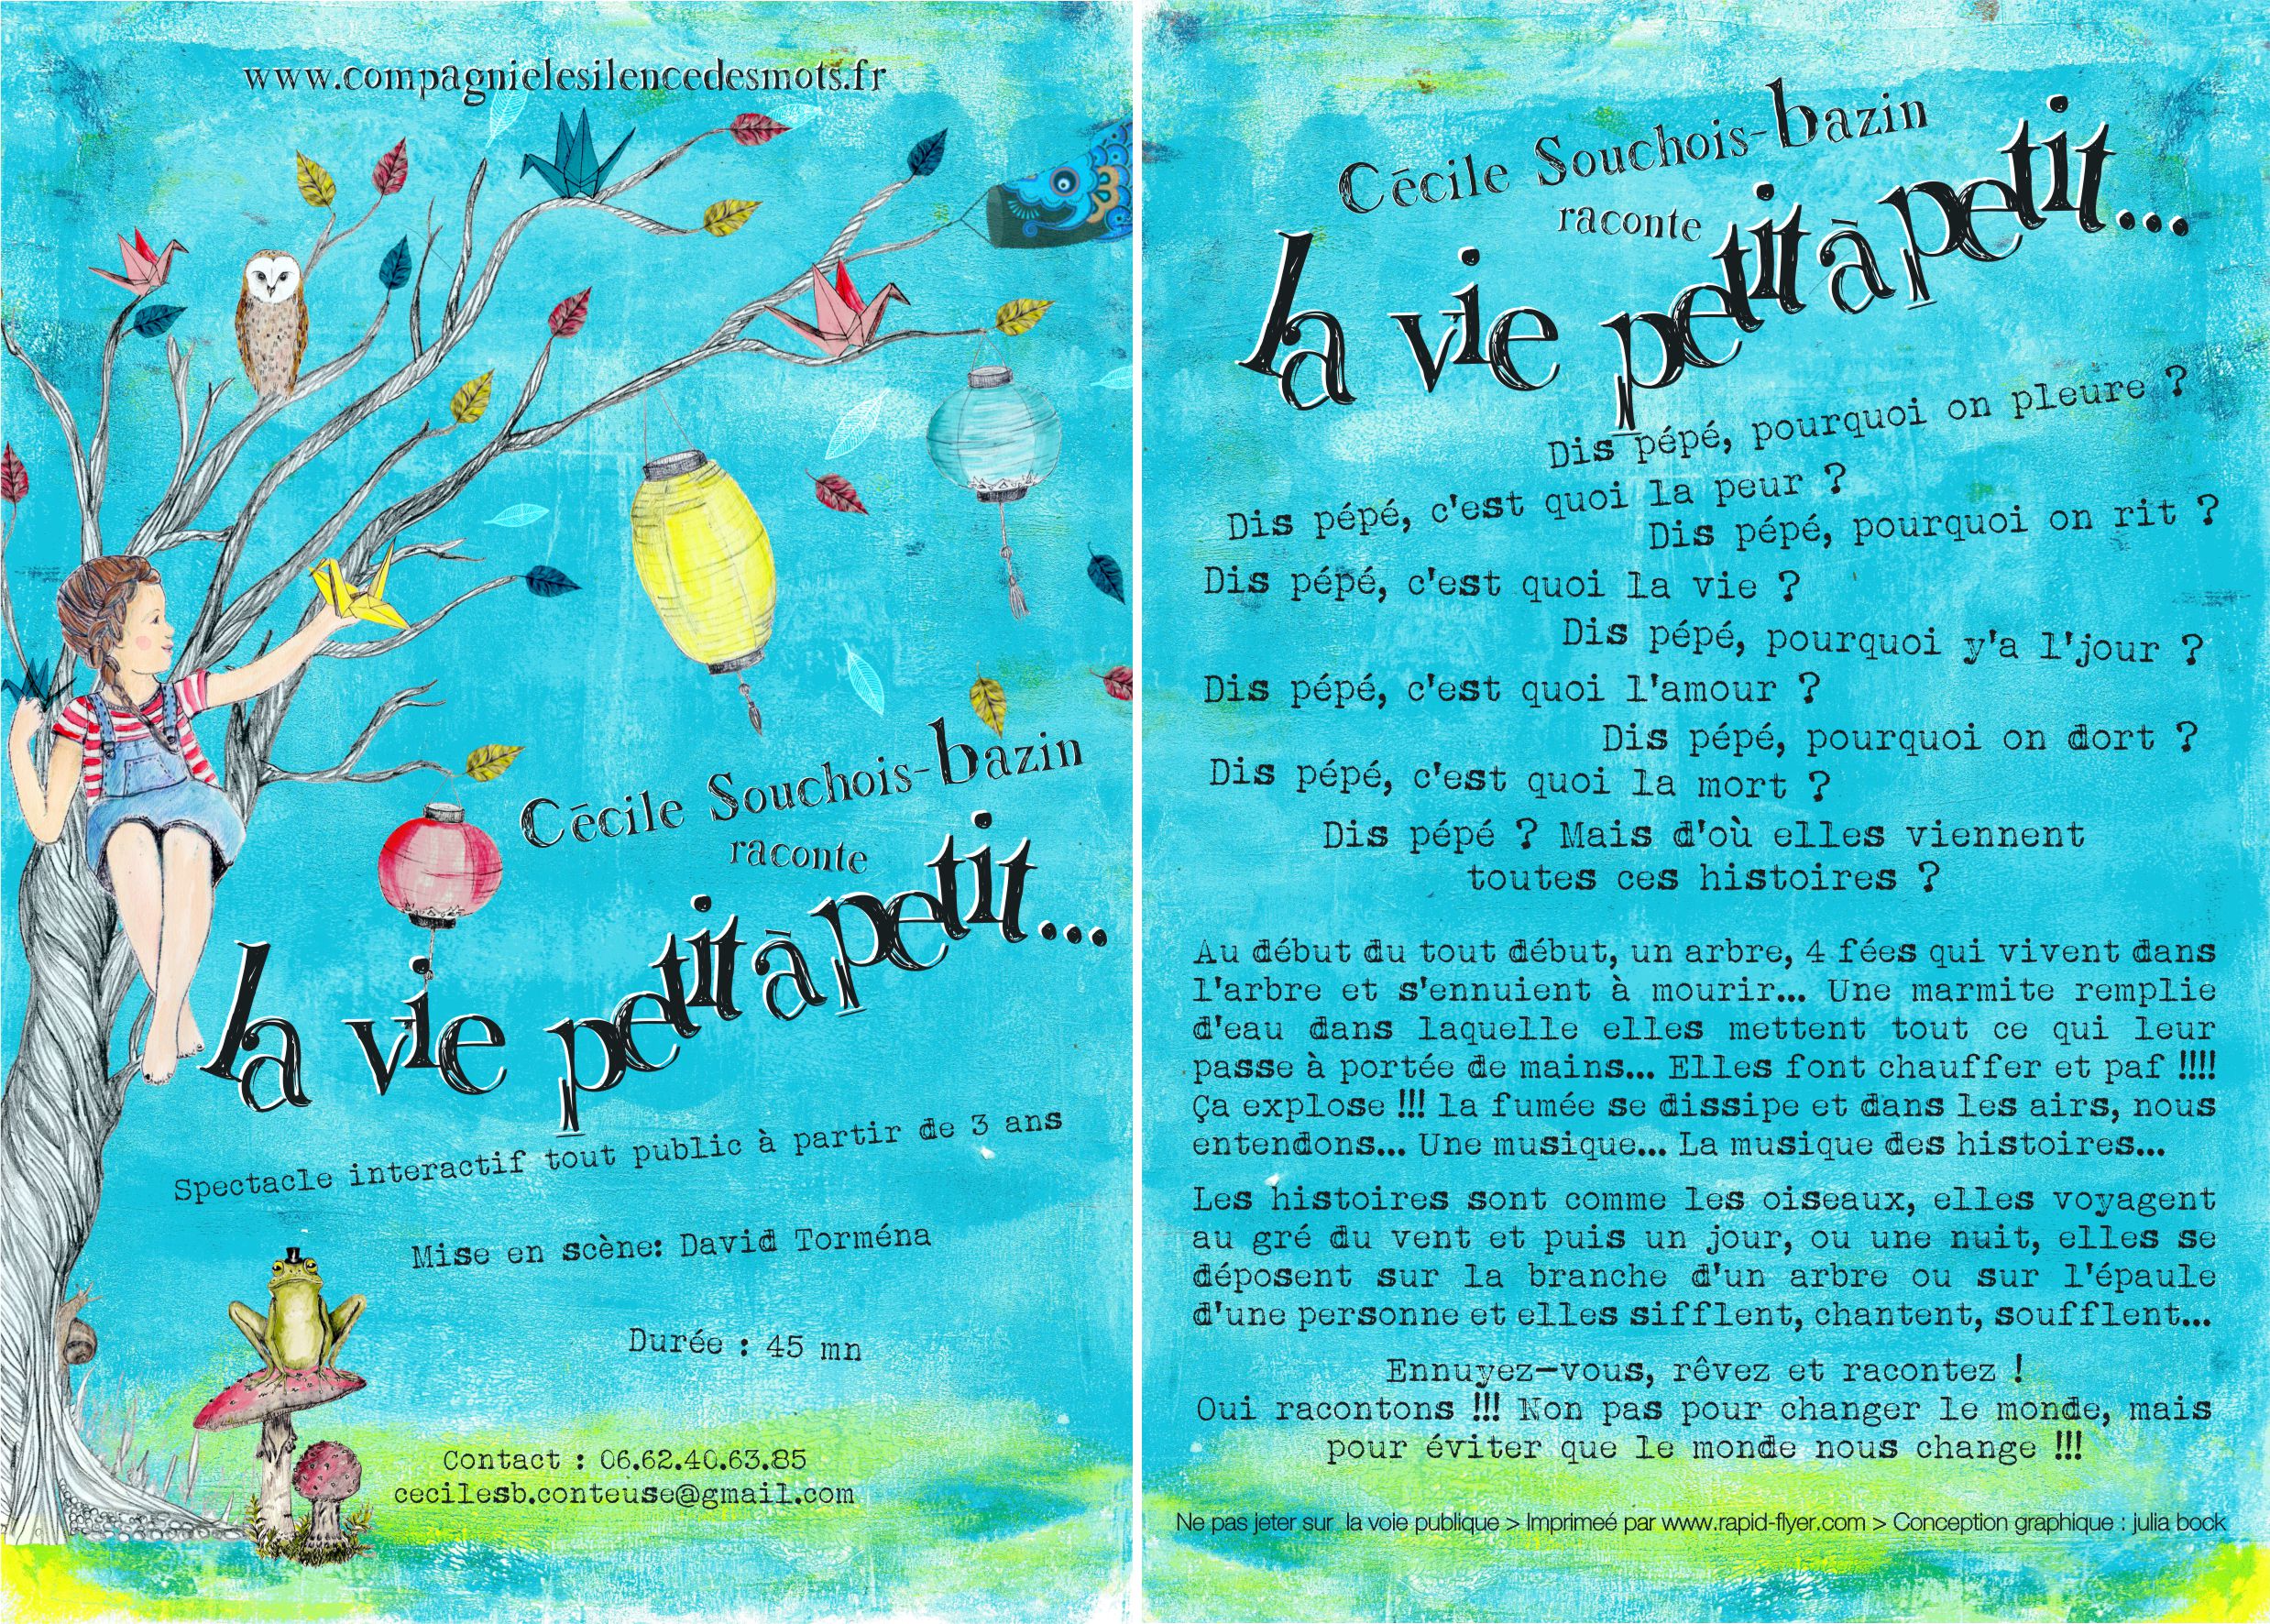 www.compagnielesilencedesmots.fr
Cécile Souchois-bazin
raconte
la vie petit à petit...
Spectacle interactif tout public à partir de 3 ans
Mise en scène: David Torména
Durée : 45 mn
Contact : 06.62.40.63.85
cecilesb.conteuse@gmail.com
Cécile Souchois-bazin
raconte
la vie petit à petit...
Dis pépé, pourquoi on pleure ?
Dis pépé, c'est quoi la peur ?
Dis pépé, pourquoi on rit ?
Dis pépé, c'est quoi la vie ?
Dis pépé, pourquoi y'a l'jour ?
Dis pépé, c'est quoi l'amour ?
Dis pépé, pourquoi on dort ?
Dis pépé, c'est quoi la mort ?
Dis pépé ? Mais d'où elles viennent
toutes ces histoires ?
Au début du tout début, un arbre, 4 fées qui vivent dans
l'arbre et s'ennuient à mourir... Une marmite remplie
d'eau dans laquelle elles mettent tout ce qui leur
passe à portée de mains... Elles font chauffer et paf !!!!
Ça explose !!! la fumée se dissipe et dans les airs, nous
entendons... Une musique... La musique des histoires...
Les histoires sont comme les oiseaux, elles voyagent
au gré du vent et puis un jour, ou une nuit, elles se
déposent sur la branche d'un arbre ou sur l'épaule
d'une personne et elles sifflent, chantent, soufflent...
Ennuyez-vous, rêvez et racontez !
Oui racontons !!! Non pas pour changer le monde, mais
pour éviter que le monde nous change !!!
Ne pas jeter sur la voie publique > Imprimeé par www.rapid-flyer.com > Conception graphique : julia bock